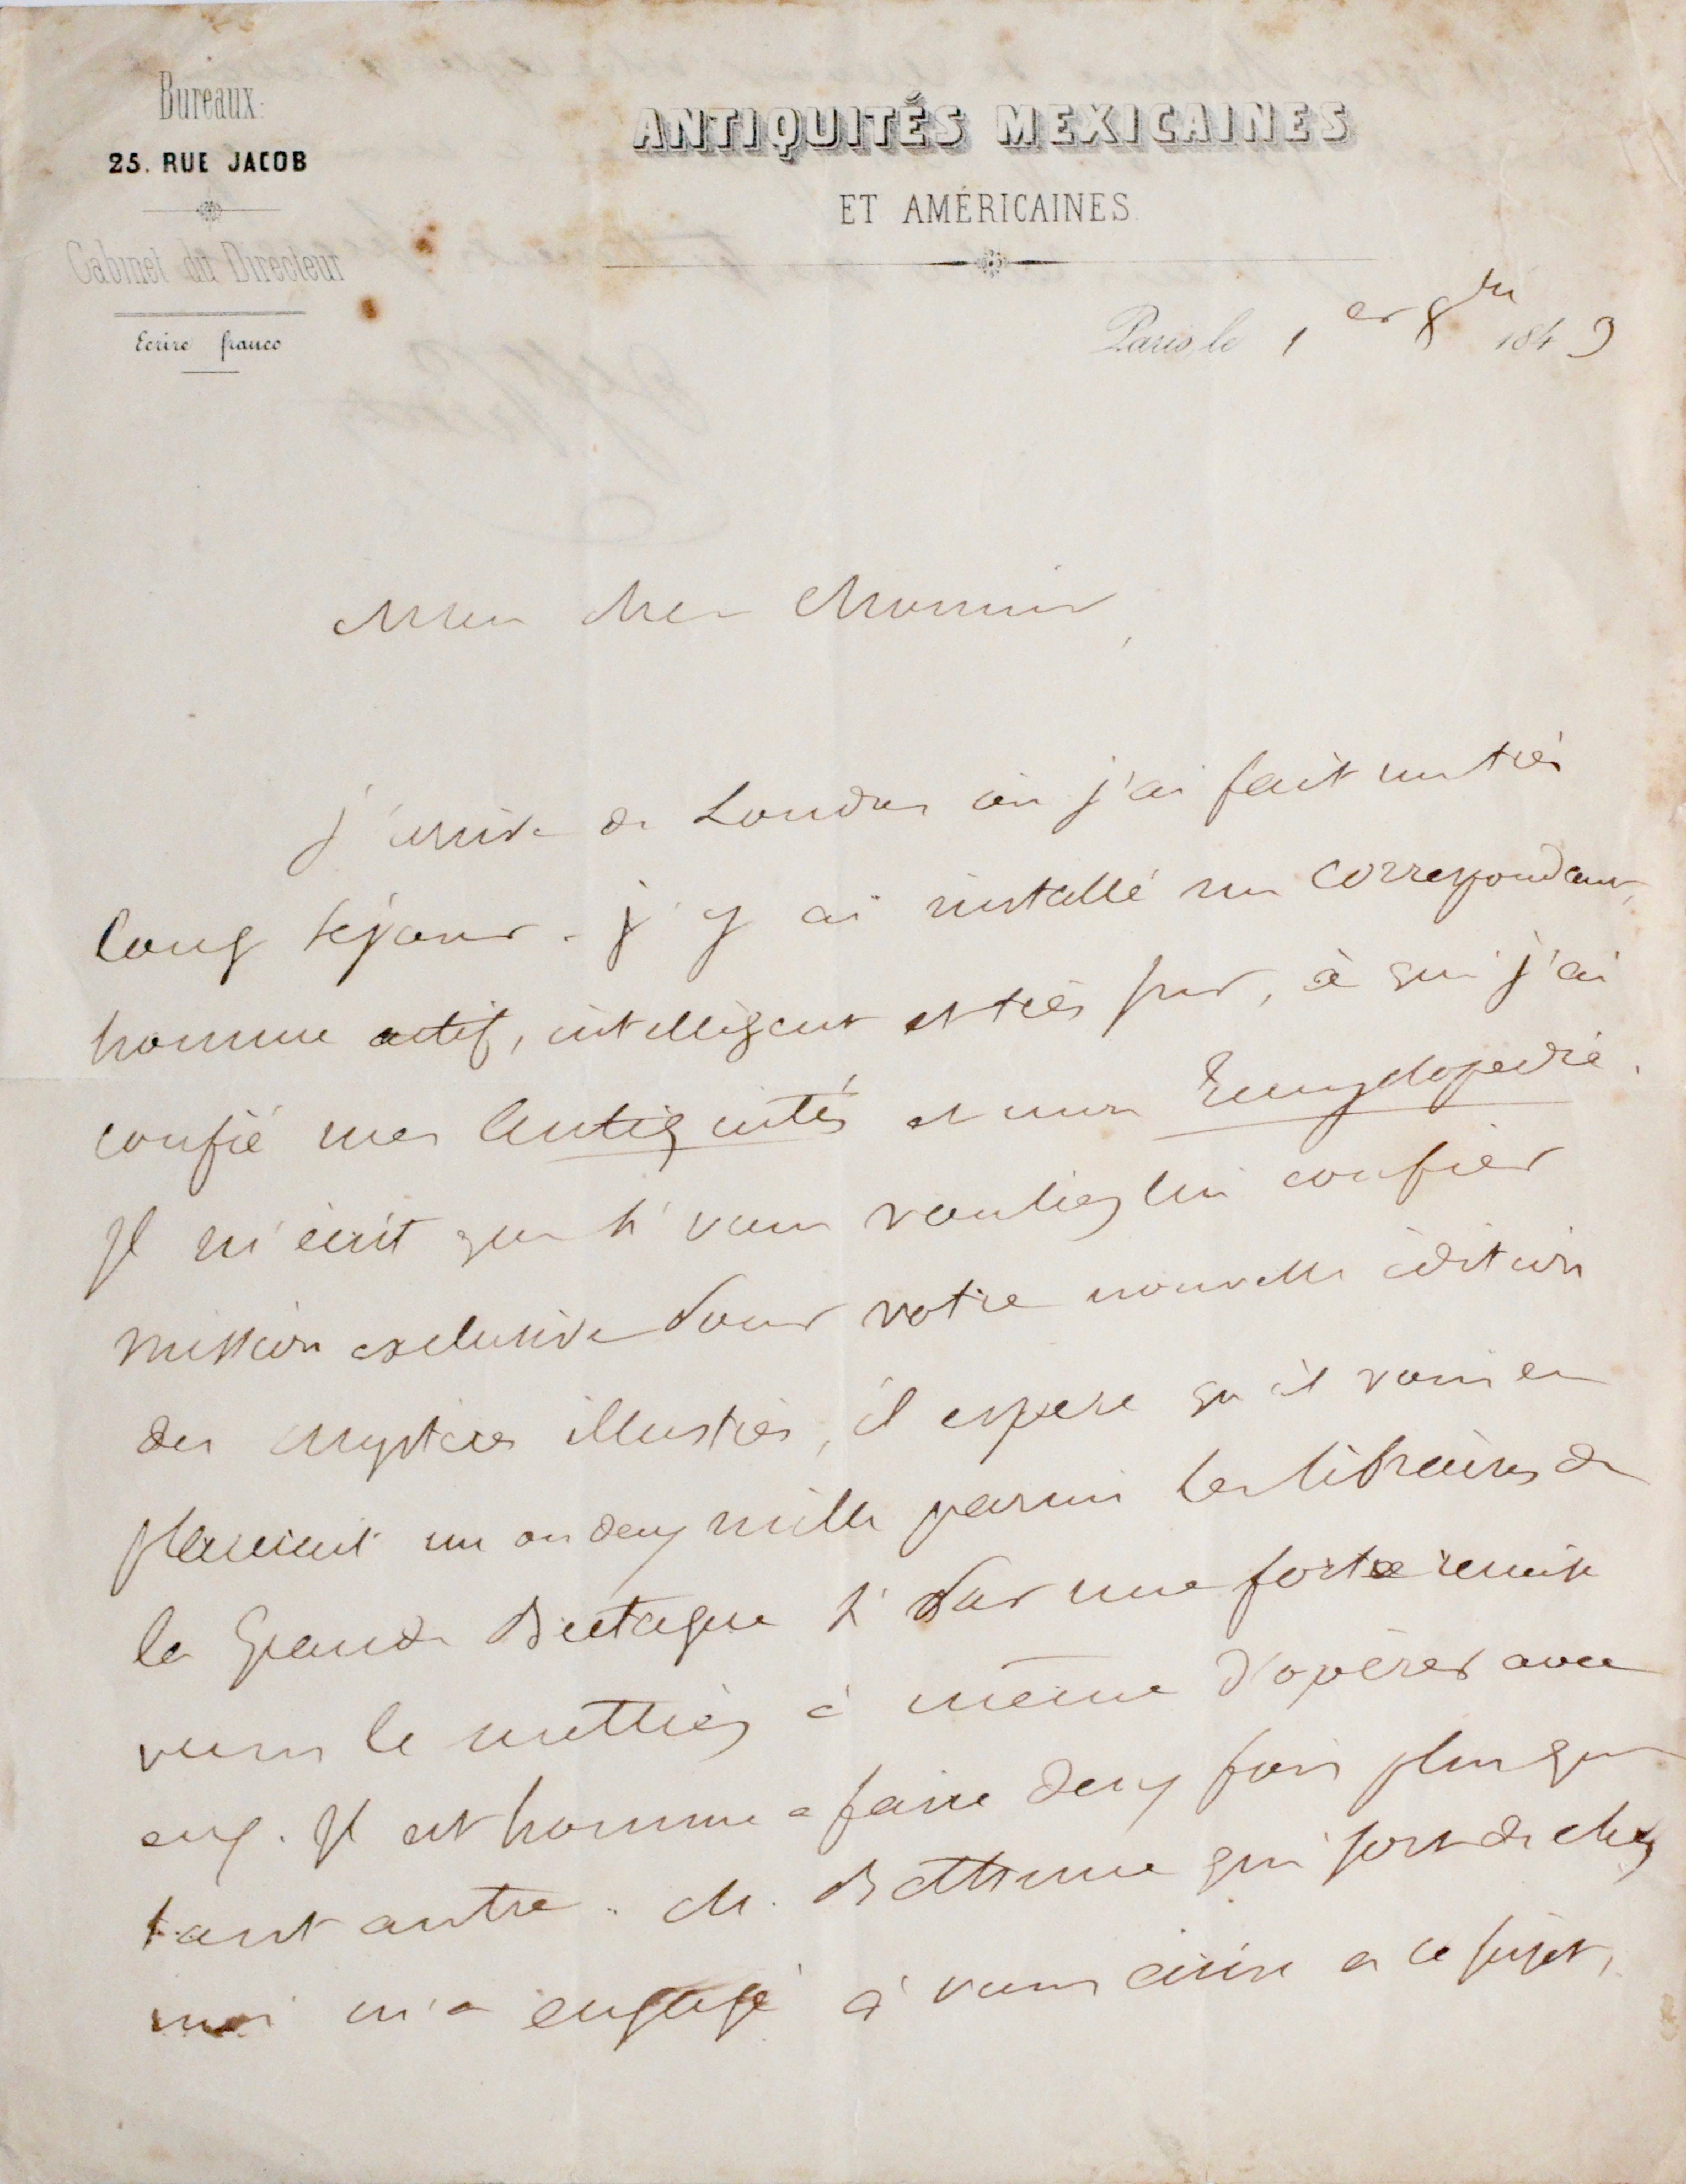 Bureaux:
25. RUE JACOB
Cabinet du Directeur
Ecrire franco
ANTIQUITÉS MEXICAINES
ET AMÉRICAINES
Paris, le 1er 8bre 1843
Mon cher Monsieur,
J'arrive de Londres où j'ai fait un très
long séjour. J'y ai installé un correspondant,
homme actif, intelligent et très sûr, à qui j'ai
confié mes Antiquités et mon Encyclopedie.
Il m'écrit que si vous vouliez lui confier
mission exclusive pour votre nouvelle édition
des mystères illustrés, il espère qu'il vous en
placerait un ou deux mille parmi les libraires de
la Grande Bretagne si par une forte remise
vous le mettiez à même d'opérer avec
eux. Il est homme a faire deux fois plus que
tout autre. M. Bethune qui sort de chez
moi m'a engagé à vous écrire a ce sujet,